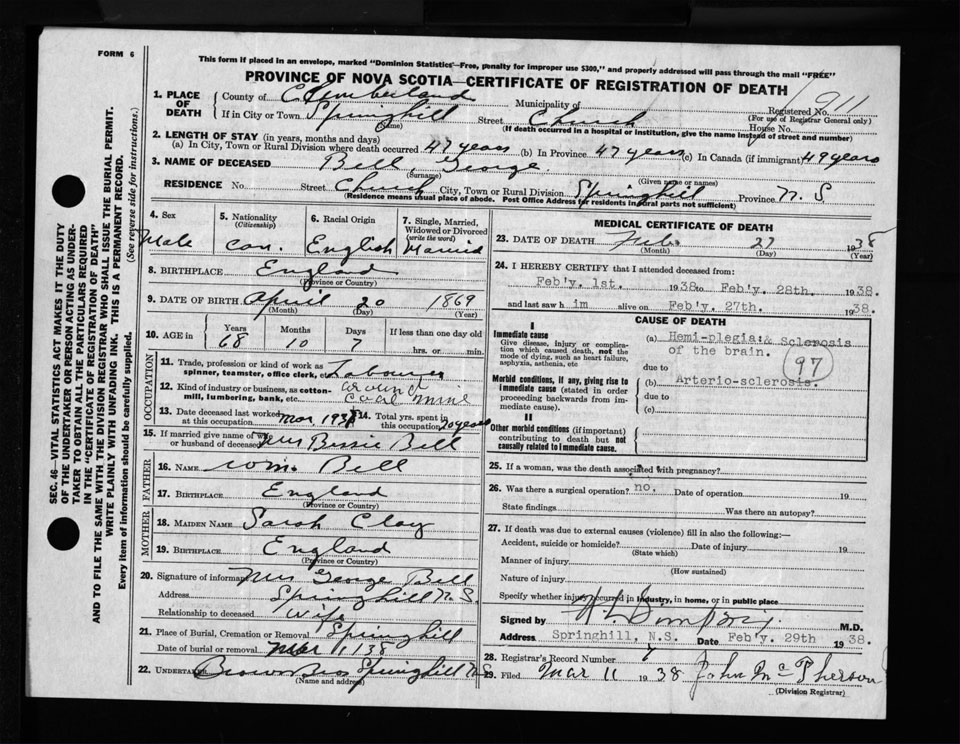 FORM 6
This form if placed in an envelope, marked "Dominion Statistics—Free, penalty for improper use $300," and properly addressed will pass through the mail "FREE"
PROVINCE OF NOVA SCOTIA—CERTIFICATE OF REGISTRATION OF DEATH
SEC. 46—VITAL STATISTICS ACT MAKES IT THE DUTY
OF THE UNDERTAKER OR PERSON ACTING AS UNDER-
TAKER TO OBTAIN ALL THE PARTICULARS REQUIRED
IN THE "CERTIFICATE OF REGISTRATION OF DEATH"
AND TO FILE THE SAME WITH THE DIVISION REGISTRAR WHO SHALL ISSUE THE BURIAL PERMIT.
WRITE PLAINLY WITH UNFADING INK. THIS IS A PERMANENT RECORD.
Every item of information should be carefully supplied. (See reverse side for instructions.)
1. PLACE OF DEATH County of Cumberland Municipality of Registered No. 911
(For use of Registrar General only)
If in City or Town Springhill (Name) Street Church House No.
(If death occurred in a hospital or institution, give the name instead of street and number)
2. LENGTH OF STAY (in years, months and days)
(a) In City, Town or Rural Division where death occurred 47 years (b) In Province 47 years (c) In Canada (if immigrant) 49 years
3. NAME OF DECEASED Bell, George.
(Surname) (Given name or names)
RESIDENCE No. Street Church City, Town or Rural Division Springhill Province N. S
(Residence means usual place of abode. Post Office Address for residents in rural parts not sufficient)
4. Sex Male
5. Nationality (Citizenship) Can.
6. Racial Origin English
7. Single, Married, Widowed or Divorced (write the word) Married
8. BIRTHPLACE England
(Province or Country)
9. DATE OF BIRTH April 20 1869
(Month) (Day) (Year)
10. AGE in Years 68 Months 10 Days 7 If less than one day old hrs. or min.
OCCUPATION
11. Trade, profession or kind of work as spinner, teamster, office clerk, etc. Labourer
12. Kind of industry or business, as cotton-mill, lumbering, bank, etc. around Coal mine
13. Date deceased last worked at this occupation Mar 193
14. Total yrs. spent in this occupation 20 years
15. If married give name of wife or husband of deceased Mrs Bessie Bell
FATHER
16. NAME Wm. Bell
17. BIRTHPLACE England
(Province or Country)
MOTHER
18. MAIDEN NAME Sarah Clay
19. BIRTHPLACE England
(Province or Country)
20. Signature of informant Mrs George Bell
Address Springhill N. S.
Relationship to deceased Wife
21. Place of Burial, Cremation or Removal Springhill
Date of burial or removal Mar 1, 38
22. UNDERTAKER Brown Bros Springhill N.S
(Name and address)
MEDICAL CERTIFICATE OF DEATH
23. DATE OF DEATH Feb. 27 1938
(Month) (Day) (Year)
24. I HEREBY CERTIFY that I attended deceased from:
Feb'y. 1st. 1938 to Feb'y. 28th. 1938.
and last saw him alive on Feb'y. 27th. 1938.
CAUSE OF DEATH
I
Immediate cause
Give disease, injury or complication which caused death, not the mode of dying, such as heart failure, asphyxia, asthenia, etc
(a) Hemi-plegia: & Sclerosis of the brain.
due to
97
Morbid conditions, if any, giving rise to immediate cause (stated in order proceeding backwards from immediate cause).
(b) Arterio-sclerosis.
due to
(c)
II
Other morbid conditions (if important) contributing to death but not causally related to immediate cause.
25. If a woman, was the death associated with pregnancy?
26. Was there a surgical operation? no. Date of operation 19
State findings Was there an autopsy?
27. If death was due to external causes (violence) fill in also the following:—
Accident, suicide or homicide? Date of injury 19
(State which)
Manner of injury
(How sustained)
Nature of injury
Specify whether injury occurred in industry, in home, or in public place
Signed by M.D.
Address Springhill, N.S. Date Feb'y. 29th 1938.
28. Registrar's Record Number 7
29. Filed Mar 11 1938 John McPherson
(Division Registrar)